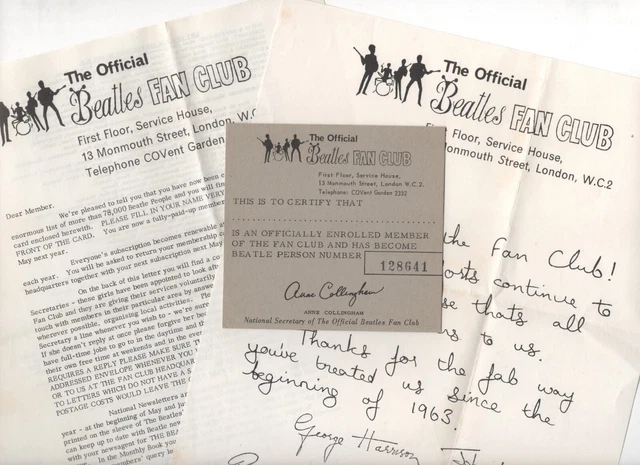 The Official
Beatles FAN CLUB
First Floor, Service House,
13 Monmouth Street, London, W.C
Telephone COVent Garden
Dear Member,
We're pleased to tell you that you have now been
enormous list of more than 78,000 Beatle People and you will fin
card enclosed herewith. PLEASE FILL IN YOUR NAME VERY
FRONT OF THE CARD. You are now a fully-paid-up member
May next year.
Everyone's subscription becomes renewable a
each year. You will be asked to return your membership
headquarters together with your next subscription next May
On the back of this letter you will find a co
Secretaries - these girls have been appointed to look aft
Fan Club and they are giving their services voluntarily
touch with members in their particular area by answer
wherever possible, organising local activities. Ple
Secretary a line whenever you wish - we're sure
If she doesn't reply at once please forgive her bec
have full-time jobs to go to in the daytime and th
their own free time at weekends and in the even
REQUIRES A REPLY PLEASE MAKE SURE T
ADDRESSED ENVELOPE WHENEVER YOU W
OR TO US AT THE FAN CLUB HEADQUART
TO LETTERS WHICH DO NOT HAVE A S
POSTAGE COSTS WOULD LEAVE THE C
National Newsletters ar
year - at the beginning of May and ju
printed on the sleeve of The Beatles
can keep up to date with Beatle new
with your newsagent for THE BEA
In the Monthly Book you
members' query in
The Official
Beatles FAN CLUB
First Floor, Service House,
13 Monmouth Street, London W.C.2.
Telephone: COVent Garden 2332
THIS IS TO CERTIFY THAT
IS AN OFFICIALLY ENROLLED MEMBER
OF THE FAN CLUB AND HAS BECOME
BEATLE PERSON NUMBER 128641
Anne Collingham
ANNE COLLINGHAM
National Secretary of The Official Beatles Fan Club
The Official
Beatles FAN CLUB
First Floor, Service House,
Monmouth Street, London, W.C.2
the Fan Club!
osts continue to
se thats all
rs to us.
Thanks for the fab way
you've treated us since the
beginning of 1963.
George Harrison